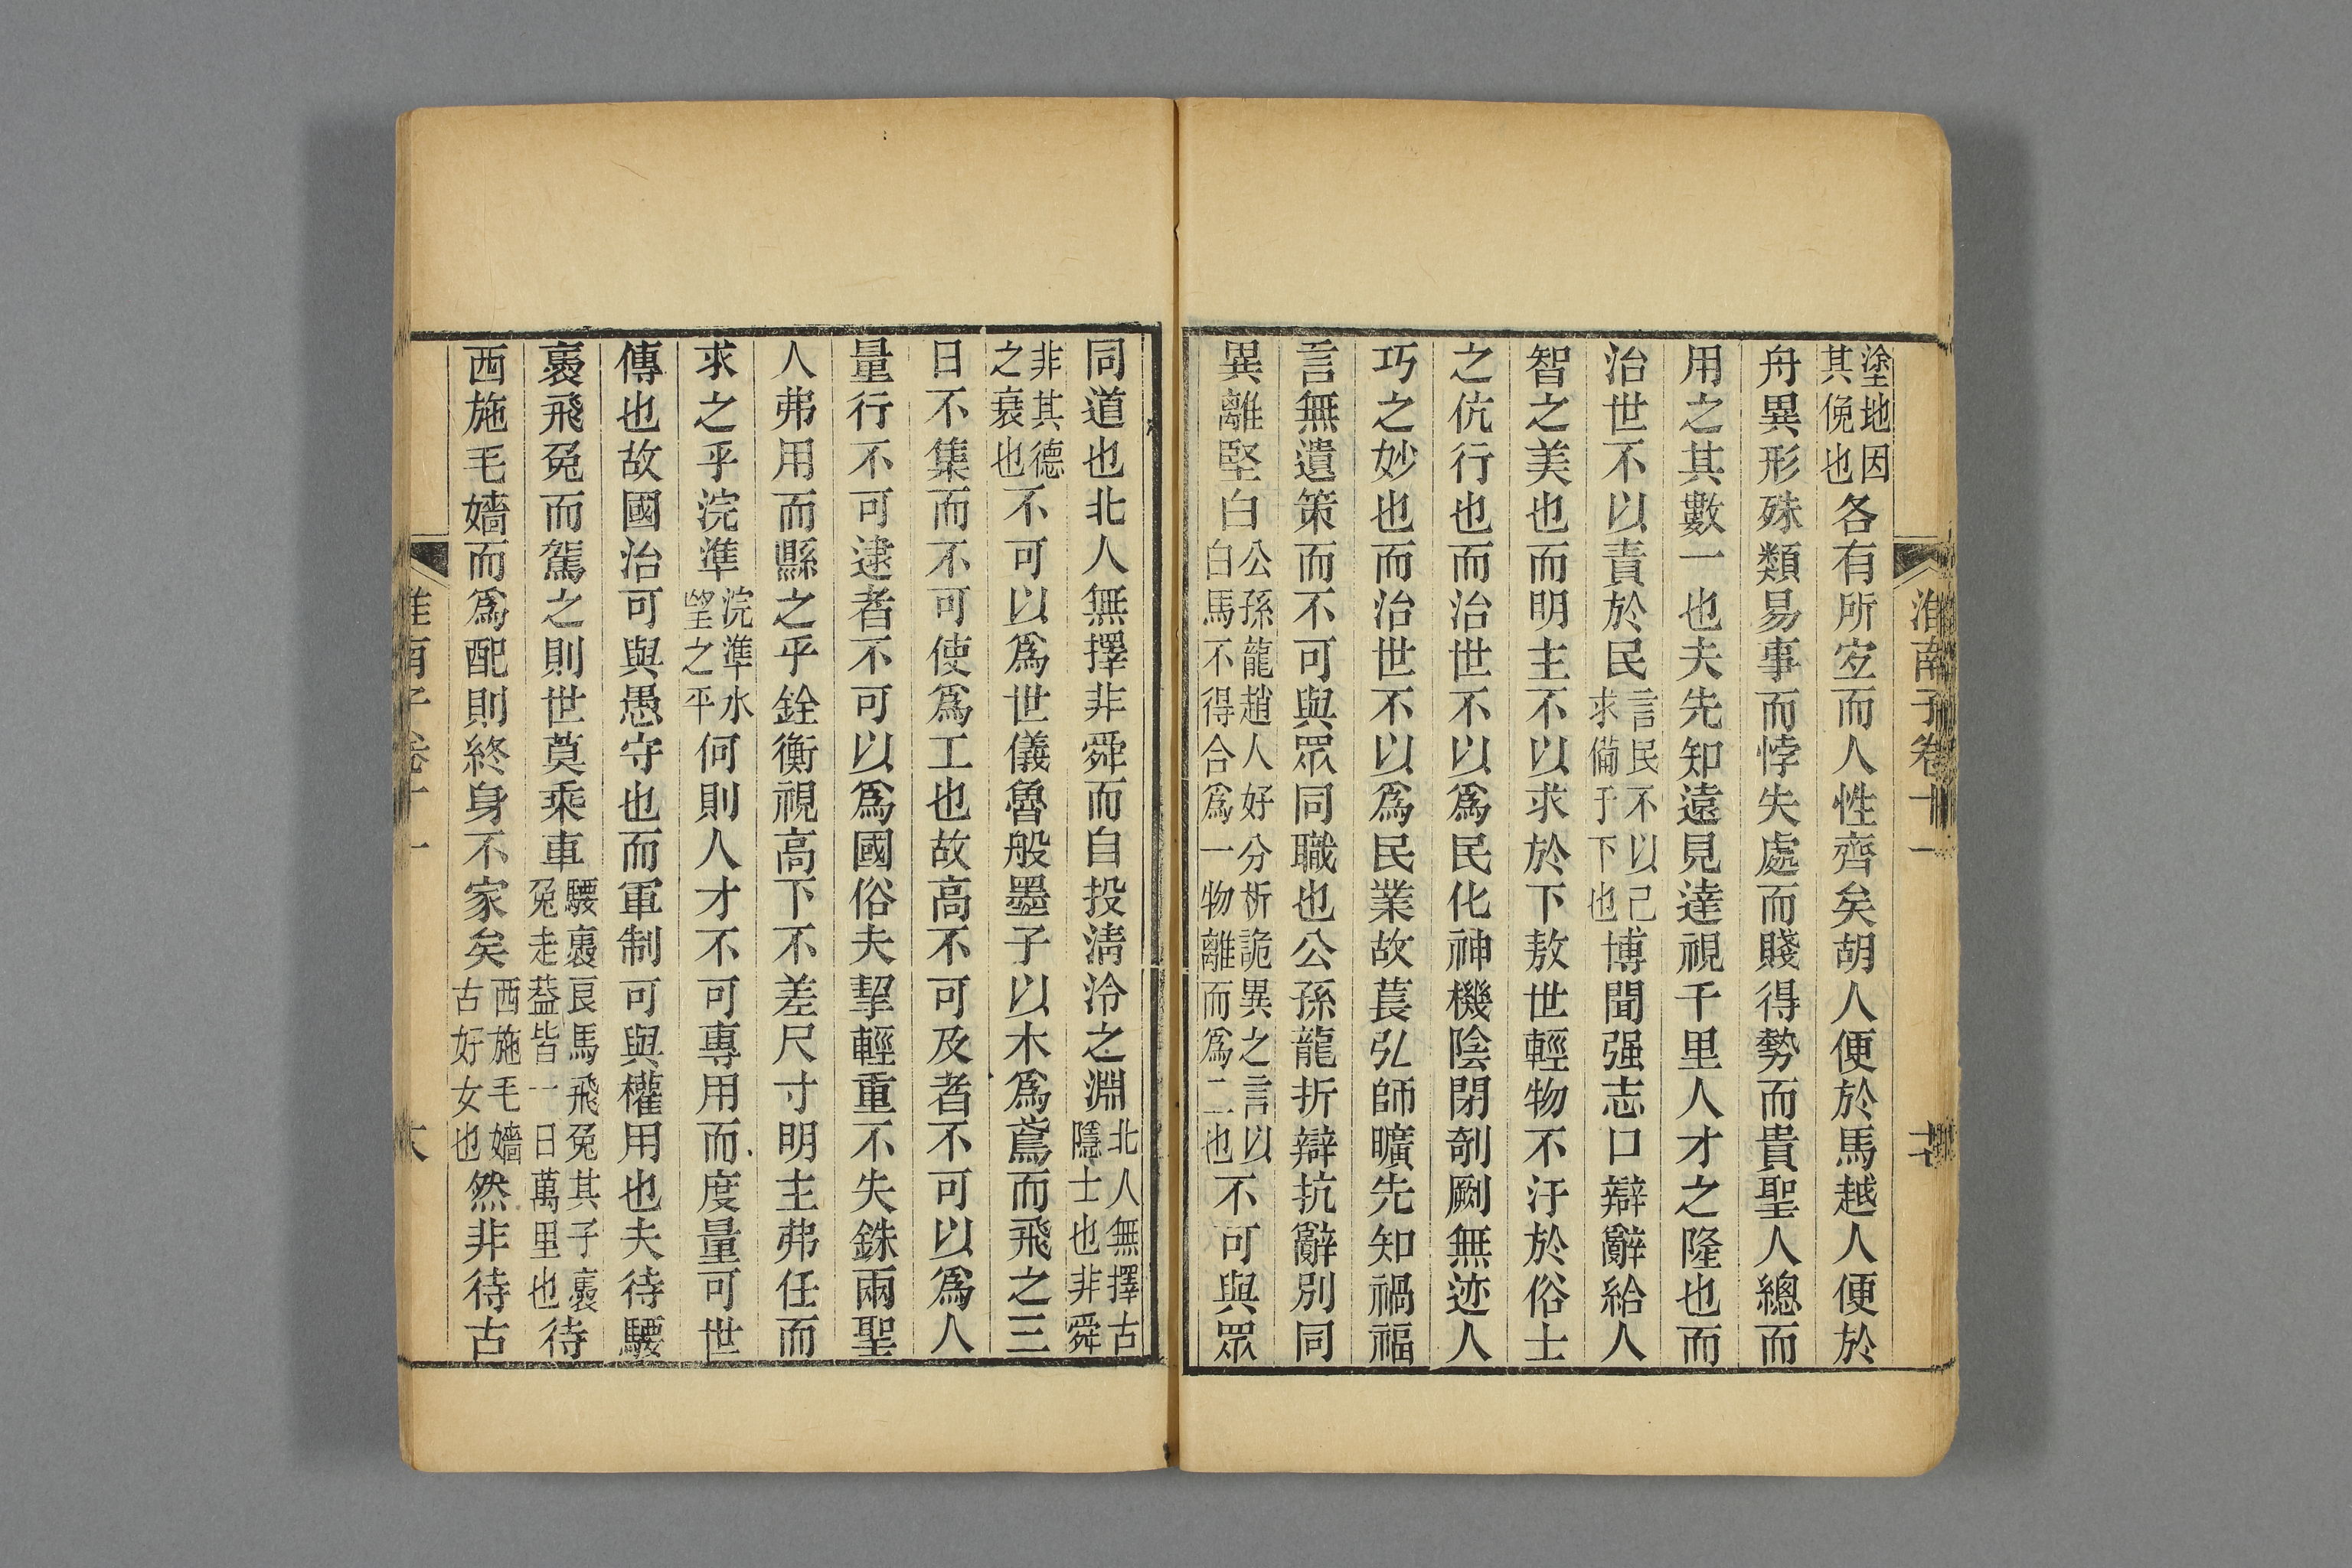 淮南子卷十一
塗地因其俛也各有所宐而人性齊矣胡人便於馬越人便於
舟異形殊類易事而悖失處而賤得勢而貴聖人總而
用之其數一也夫先知遠見達視千里人才之隆也而
治世不以責於民言民不以己求備于下也博聞强志口辯辭給人
智之美也而明主不以求於下敖世輕物不汙於俗士
之伉行也而治世不以爲民化神機陰閉剞劂無迹人
巧之妙也而治世不以爲民業故萇弘師曠先知禍福
言無遺策而不可與眾同職也公孫龍折辯抗辭別同
異離堅白公孫龍趙人好分析詭異之言以白馬不得合爲一物離而爲二也不可與眾
同道也北人無擇非舜而自投淸泠之淵北人無擇古隱士也非舜
非其德之衰也不可以爲世儀魯般墨子以木爲鳶而飛之三
日不集而不可使爲工也故高不可及者不可以爲人
量行不可逮者不可以爲國俗夫挈輕重不失銖兩聖
人弗用而縣之乎銓衡視高下不差尺寸明主弗任而
求之乎浣準浣準水望之平何則人才不可專用而度量可世
傳也故國治可與愚守也而軍制可與權用也夫待騕
褭飛兔而駕之則世莫乘車騕褭良馬飛兔其子褭兔走葢皆一日萬里也待
西施毛嬙而爲配則終身不家矣西施毛嬙古好女也然非待古
南子卷十一